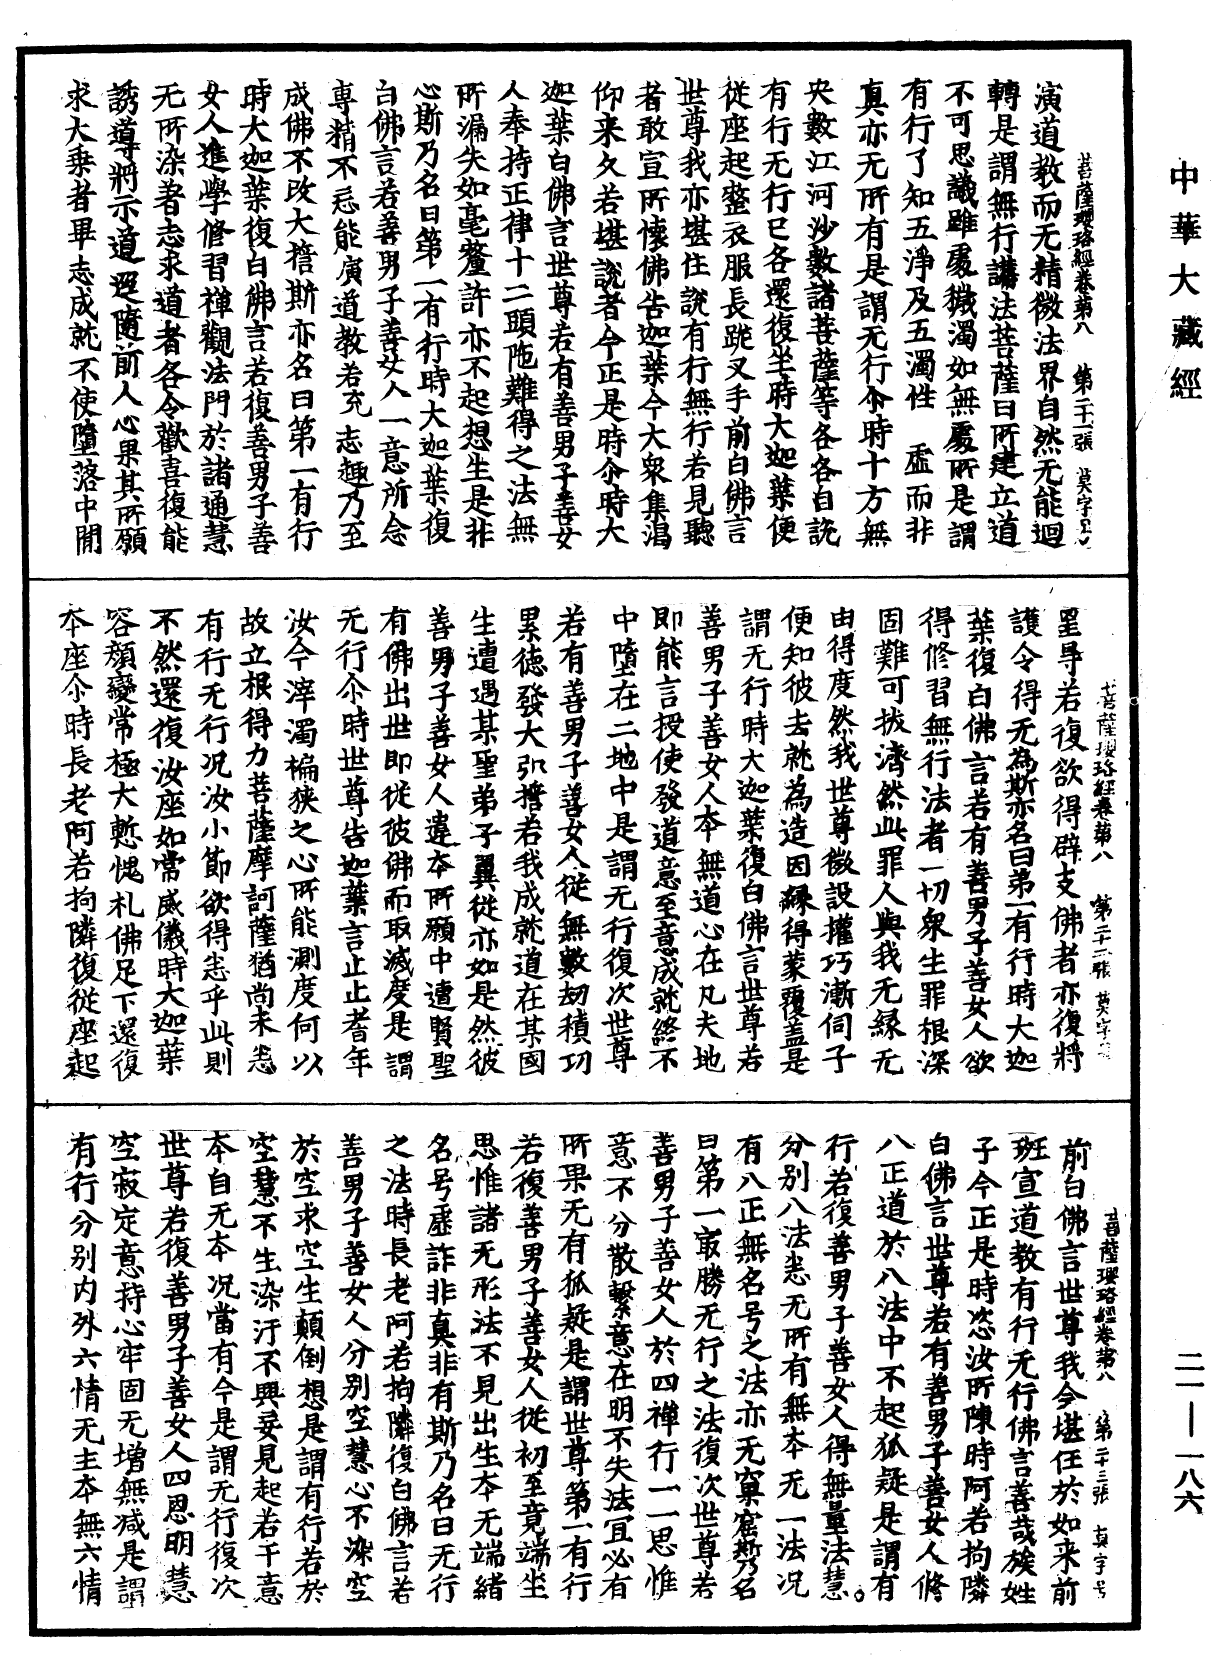 中華大藏經
二一—一八六
菩薩瓔珞經卷第八 第二十一張 莫字号
演道教而无精微法界自然无能迴
轉是謂無行講法菩薩曰所建立道
不可思議雖處穢濁如無處所是謂
有行了知五淨及五濁性 虛而非
真亦无所有是謂无行尒時十方無
央數江河沙數諸菩薩等各各自說
有行无行已各還復坐時大迦葉便
從座起整衣服長跪叉手前白佛言
世尊我亦堪住說有行無行若見聽
者敢宣所懷佛告迦葉今大眾集渴
仰来久若堪說者今正是時尒時大
迦葉白佛言世尊若有善男子善女
人奉持正律十二頭陁難得之法無
所漏失如毫釐許亦不起想生是非
心斯乃名曰第一有行時大迦葉復
白佛言若善男子善女人一意所念
専精不忘能演道教若充志趣乃至
成佛不改大擔斯亦名曰第一有行
時大迦葉復白佛言若復善男子善
女人進學修習禪觀法門於諸通慧
无所染著志求道者各令歡喜復能
誘導將示道逕隨前人心果其所願
求大乗者畢志成就不使墮落中開
菩薩瓔珞經卷第八 第二十二張 莫字
星导若復欲得辟支佛者亦復將
護令得无為斯亦名曰第一有行時大迦
葉復白佛言若有善男子善女人欲
得修習無行法者一切衆生罪根深
固難可拔濟然此罪人與我无緣无
由得度然我世尊微設權巧漸伺子
便知彼去就為造因緣得蒙覆蓋是
謂无行時大迦葉復白佛言世尊若
善男子善女人本無道心在凡夫地
即能言授使發道意至意成就終不
中墮在二地中是謂无行復次世尊
若有善男子善女人從無數劫積功
累德發大弘擔若我成就道在某國
生遭遇某聖弟子翼從亦如是然彼
善男子善女人違本所願中遭賢聖
有佛出世即從彼佛而取滅度是謂
无行尒時世尊告迦葉言止止耆年
汝今滓濁褊狹之心所能測度何以
故立根得力菩薩摩訶薩猶尚未悉
有行无行况汝小節欲得悉乎此則
不然還復汝座如常威儀時大迦葉
容顏變常極大慙愧札佛足下還復
本座尒時長老阿若拘隣復從座起
菩薩瓔珞經卷第八 第二十三張 莫字号
前白佛言世尊我今堪任於如来前
班宣道教有行无行佛言善哉族姓
子今正是時恣汝所陳時阿若拘隣
白佛言世尊若有善男子善女人修
八正道於八法中不起狐疑是謂有
行若復善男子善女人得無量法慧
分別八法悉无所有無本无一法况
有八正無名号之法亦无窠窟斯乃名
曰第一㝡勝无行之法復次世尊若
善男子善女人於四禪行一一思惟
意不分散繫意在明不失法冝必有
所果无有狐疑是謂世尊第一有行
若復善男子善女人從初至竟端坐
思惟諸无形法不見出生本无端緒
名号虛詐非真非有斯乃名曰无行
之法時長老阿若拘隣復白佛言若
善男子善女人分別空慧心不染空
於空求空生顛倒想是謂有行若於
空慧不生染汙不興妄見起若干意
本自无本况當有今是謂无行復次
世尊若復善男子善女人四恩明慧
空寂定意持心牢固无增無减是謂
有行分別内外六情无主本無六情